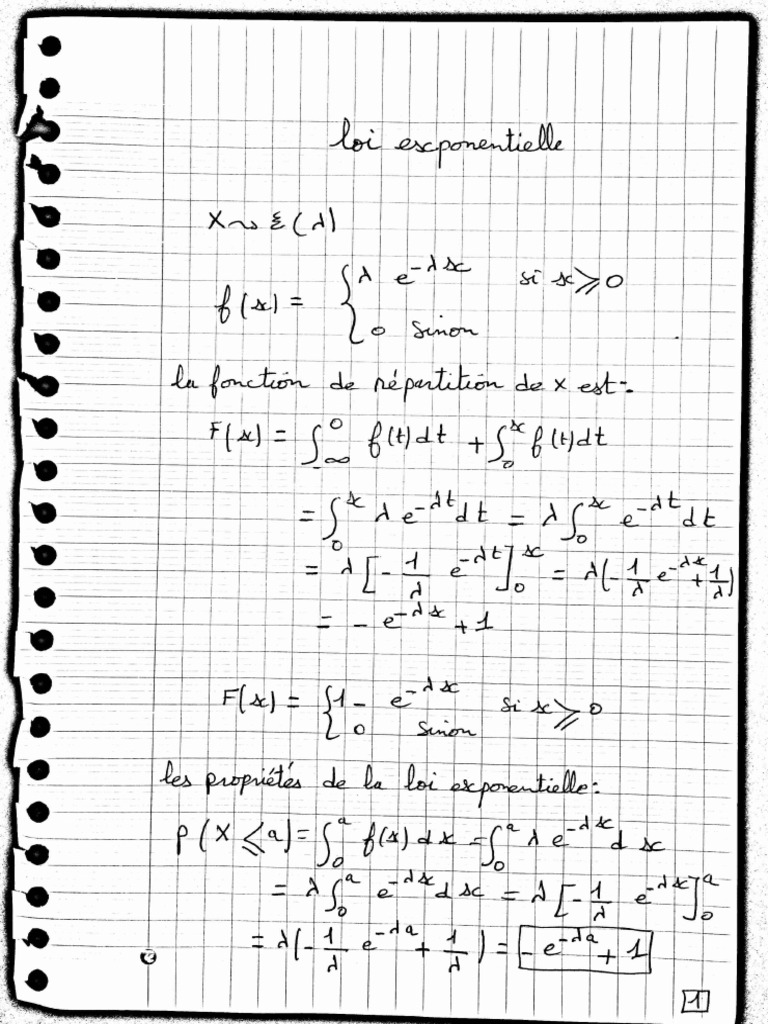 loi exponentielle
X ~ ξ(λ)
f(x) = { λ e^{-λx} si x ⩾ 0
0 sinon
la fonction de répartition de x est :.
F(x) = ∫_{-∞}^{0} f(t)dt + ∫_{0}^{x} f(t)dt
= ∫_{0}^{x} λ e^{-λt} dt = λ ∫_{0}^{x} e^{-λt} dt
= λ [ - 1/λ e^{-λt} ]_{0}^{x} = λ( - 1/λ e^{-λx} + 1/λ )
= - e^{-λx} + 1
F(x) = { 1 - e^{-λx} si x ⩾ 0
0 sinon
les propriétés de la loi exponentielle :
p(X ⩽ a) = ∫_{0}^{a} f(x) dx = ∫_{0}^{a} λ e^{-λx} dx
= λ ∫_{0}^{a} e^{-λx} dx = λ [ - 1/λ e^{-λx} ]_{0}^{a}
= λ( - 1/λ e^{-λa} + 1/λ ) = - e^{-λa} + 1
1